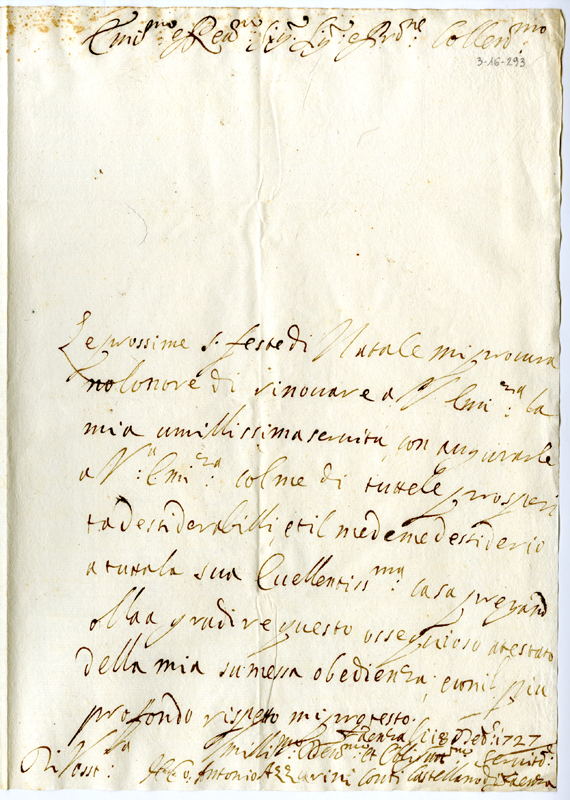 Emi.mo e Reu.mo Sig.r Sig.r e Pro.ne Collend.mo
3-16-293
Le prossime S. feste di Natale mi procura
no lonore di rinouare a V. Emi.za la
mia umillissima seruita, con augurarle
a V.a Emi.za colme di tutte le prosperi
ta destiderabilli, et il medeme destiderio
a tutta la sua Eccellentiss.ma casa pregand
olla a gradire questo ossequioso atestato
della mia sumessa obedienza, e con il piu
profondo rispetto mi protesto.
Faenza li 18 Deb.e 1727
Di Vost.ra Umilli.mo Deuo.mo et Oblig.mo Seruit.e
Antonio Azzarini Conti Castellano di Faenza